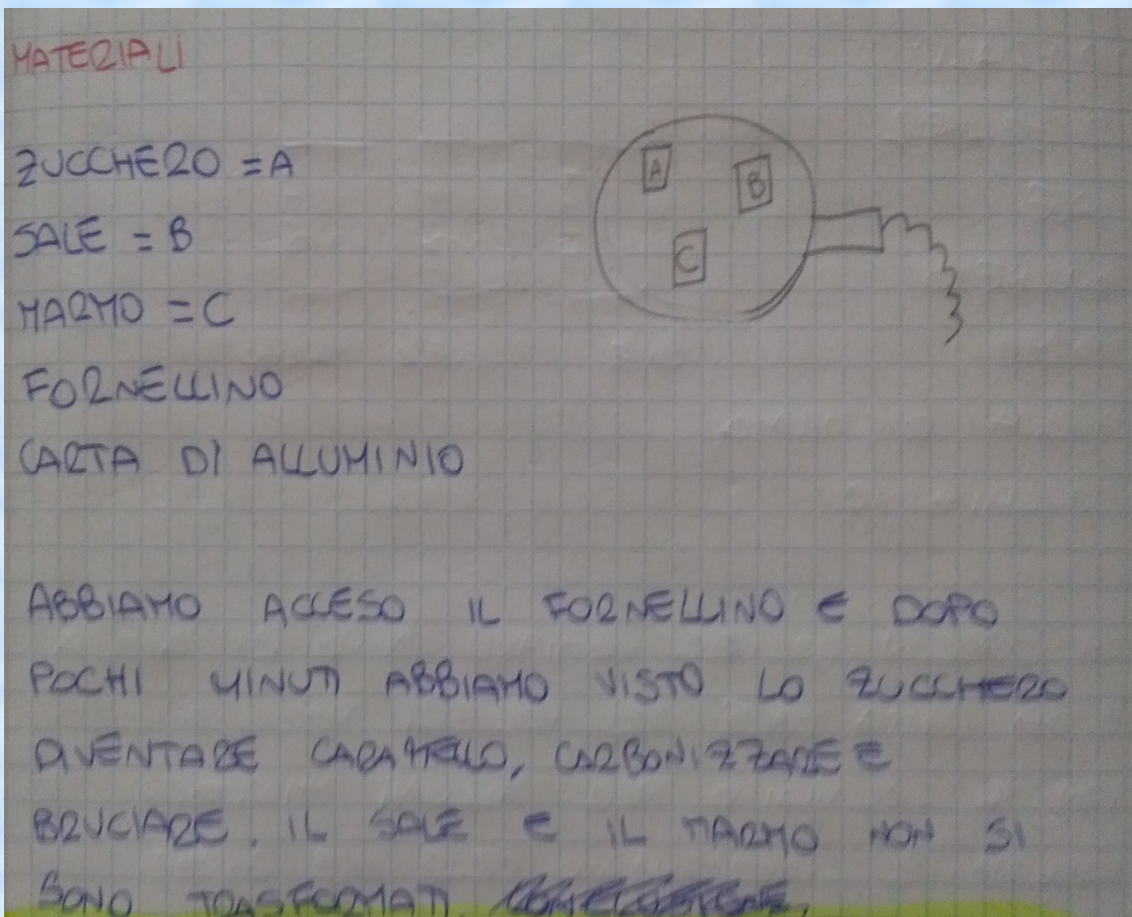 MATERIALI
ZUCCHERO = A
SALE = B
MARMO = C
FORNELLINO
CARTA DI ALLUMINIO
A
B
C
ABBIAMO ACCESO IL FORNELLINO E DOPO
POCHI MINUTI ABBIAMO VISTO LO ZUCCHERO
DIVENTARE CARAMELLO, CARBONIZZARE E
BRUCIARE. IL SALE E IL MARMO NON SI
SONO TRASFORMATI